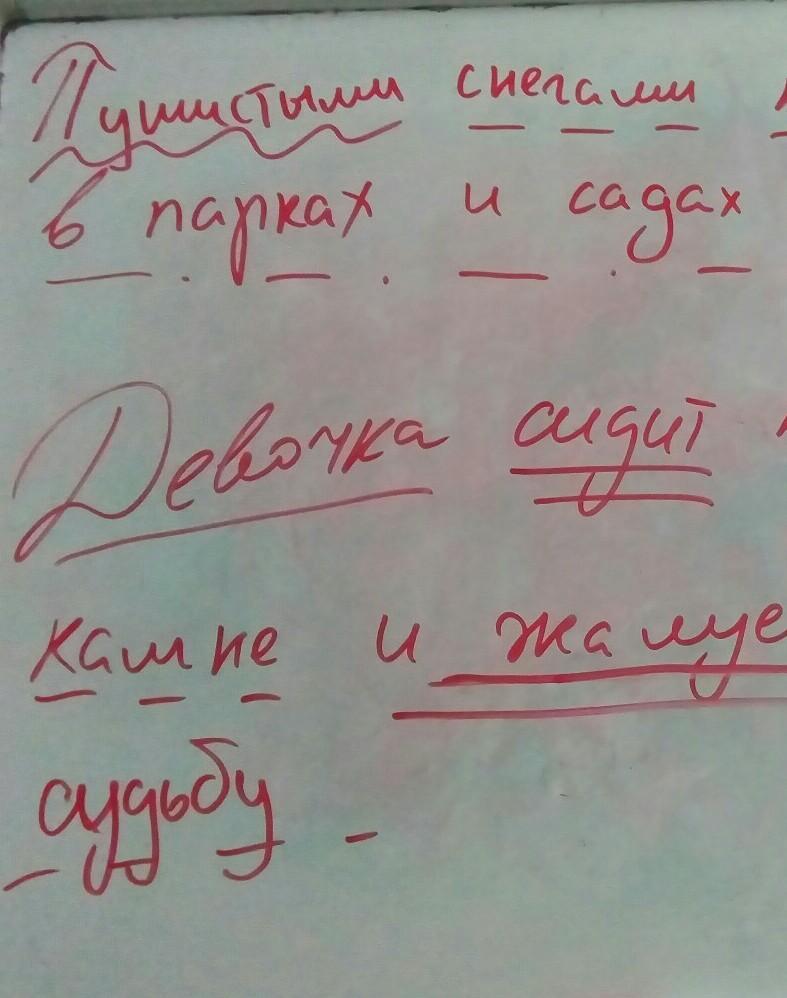 Пушистыми снегами
в парках и садах
Девочка сидит
камне и жалуе
судьбу